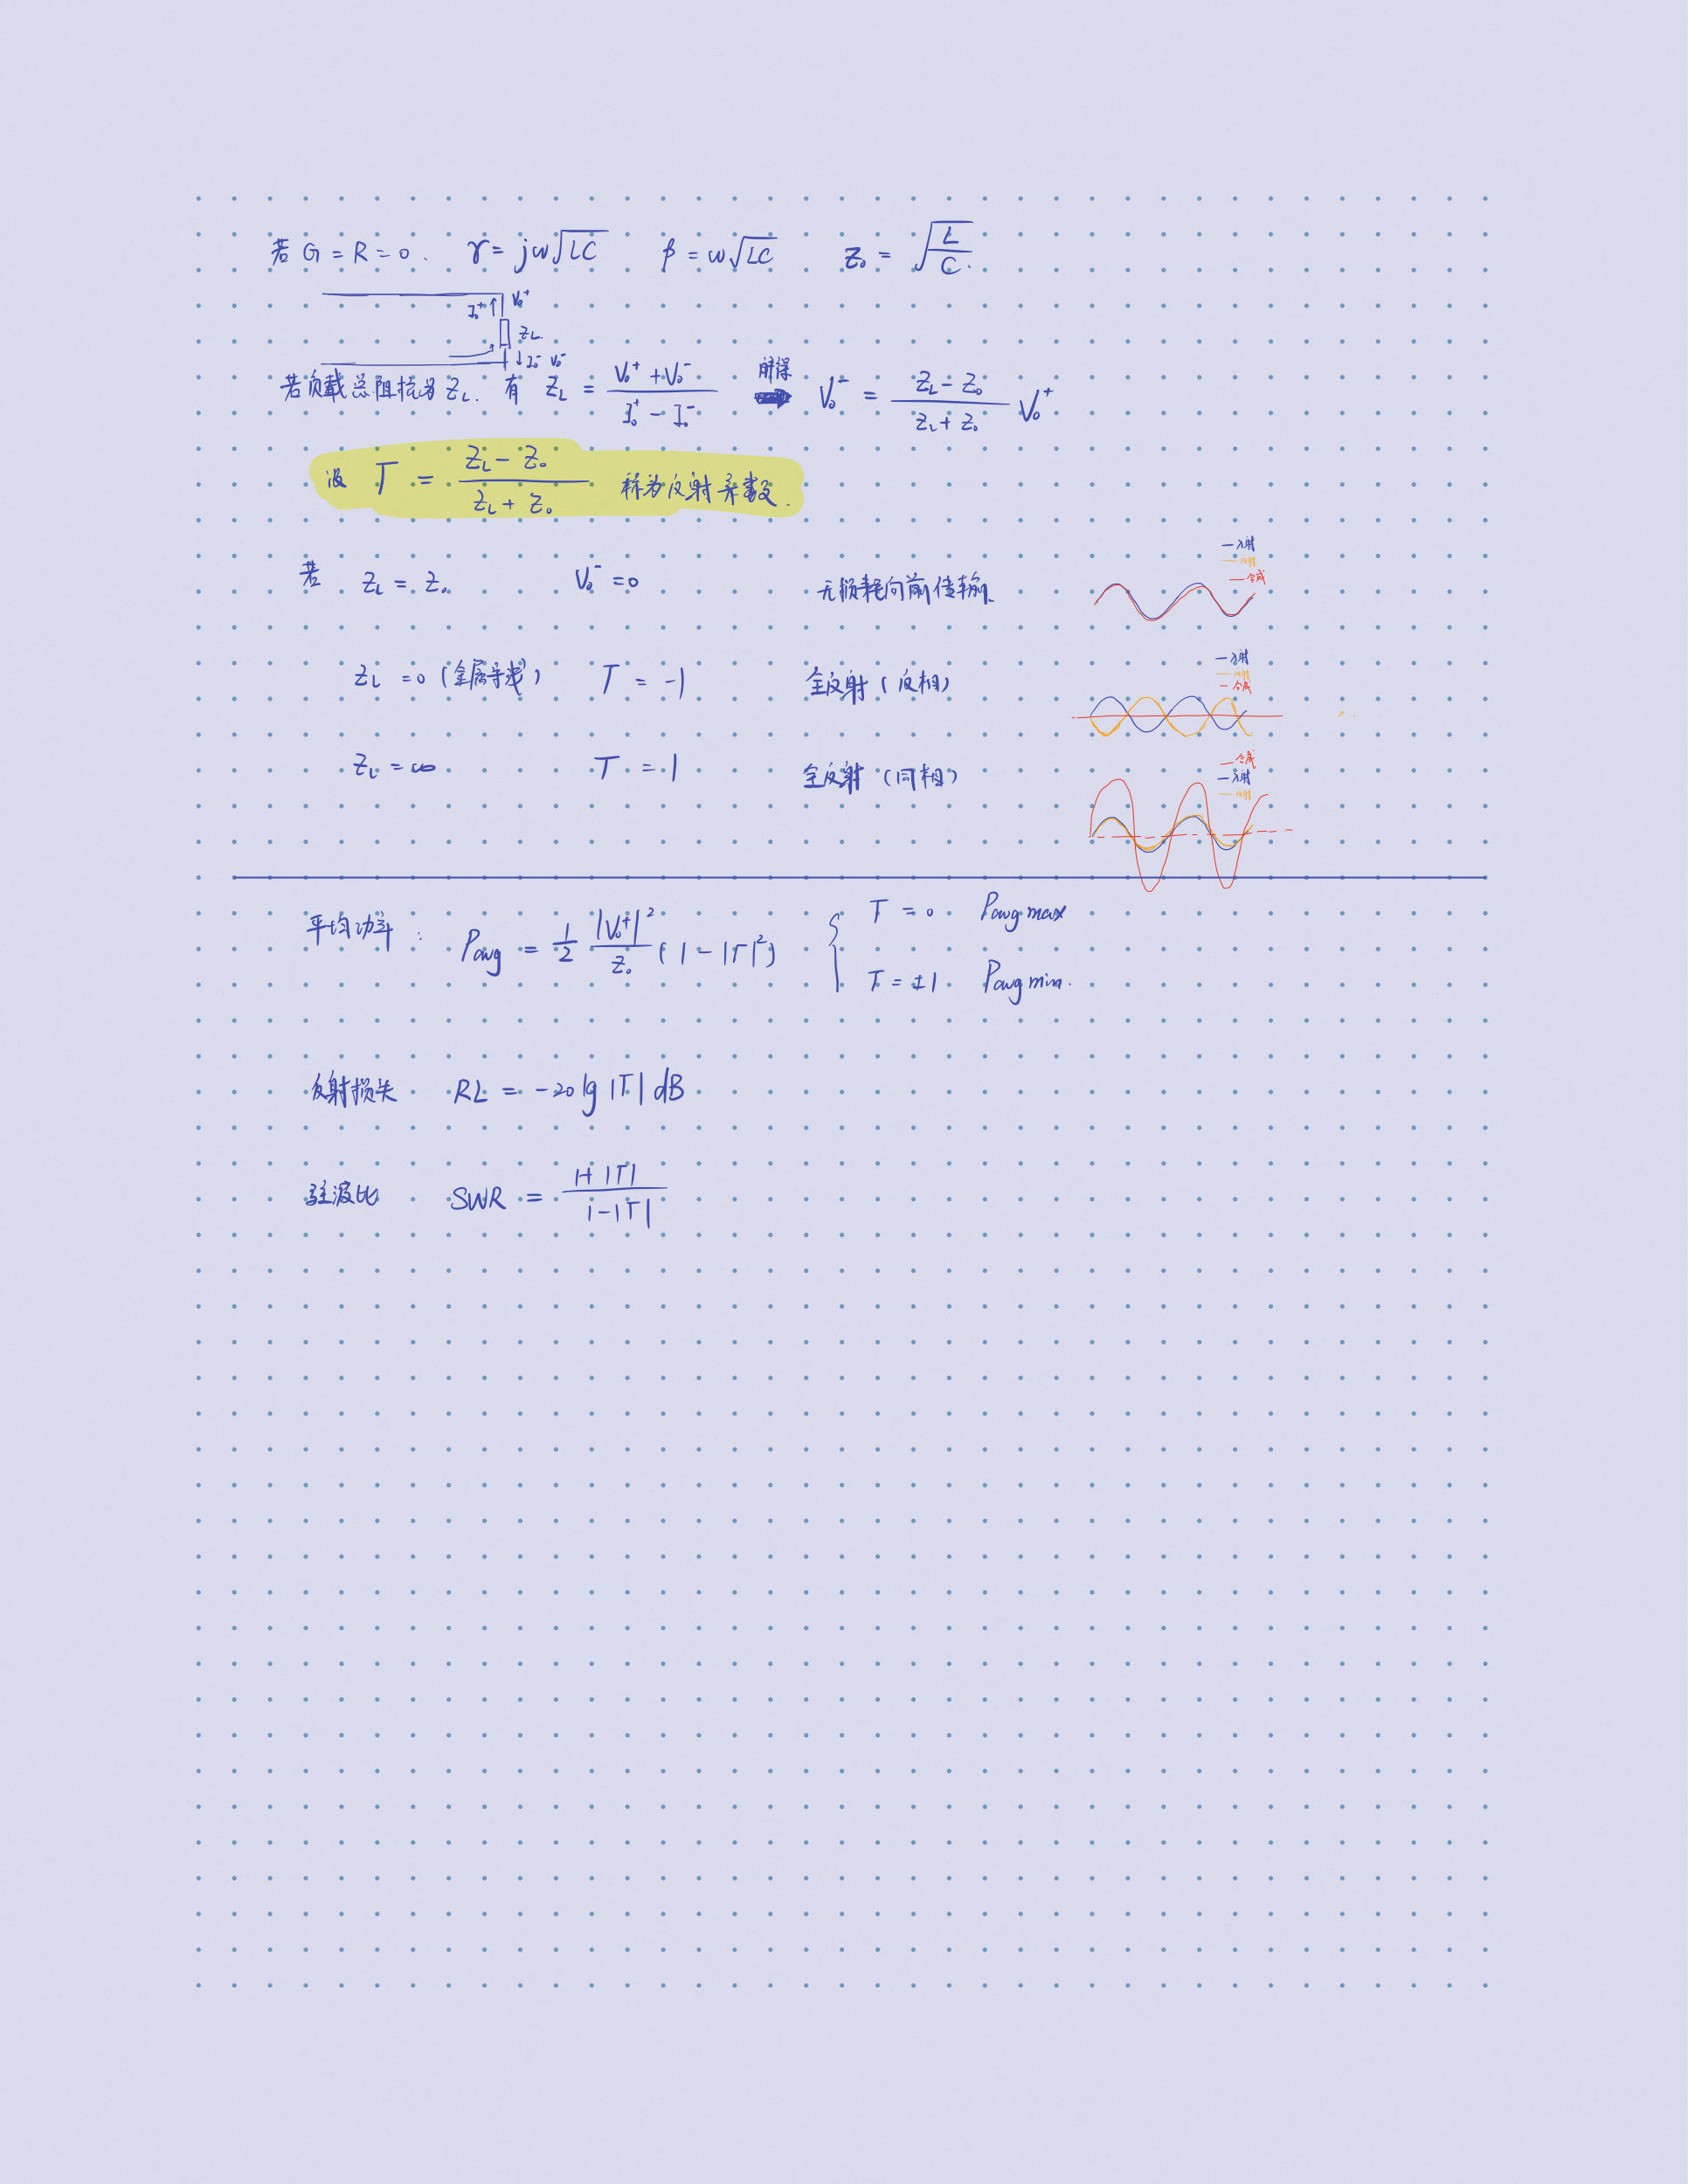 若 G = R = 0. γ = jω√LC β = ω√LC Z₀ = √(L/C).
I₀⁺ ↑ V₀⁺
Z_L
↓ I₀⁻ V₀⁻
若负载总阻抗为 Z_L. 有 Z_L = (V₀⁺ + V₀⁻)/(I₀⁺ - I₀⁻) 解得 → V₀⁻ = (Z_L - Z₀)/(Z_L + Z₀) V₀⁺
设 Γ = (Z_L - Z₀)/(Z_L + Z₀) 称为反射系数.
— 入射
— 反射
— 合成
若 Z_L = Z₀ V₀⁻ = 0 无损耗向前传输.
— 入射
— 反射
— 合成
Z_L = 0 (金属导线) Γ = -1 全反射 (反相)
— 合成
— 入射
— 反射
Z_L = ∞ Γ = 1 全反射 (同相)
平均功率: Pavg = 1/2 |V₀⁺|²/Z₀ (1 - |Γ|²) { Γ = 0 Pavg max
Γ = ±1 Pavg min.
反射损失 RL = -20 lg |Γ| dB
驻波比 SWR = (1+|Γ|)/(1-|Γ|)